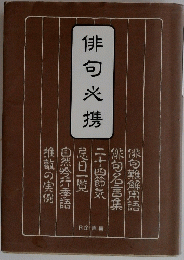 俳句必携
俳句難解用語
俳句名言集
二十四節気
忌日一覧
自然吟行季語
推敲の実例